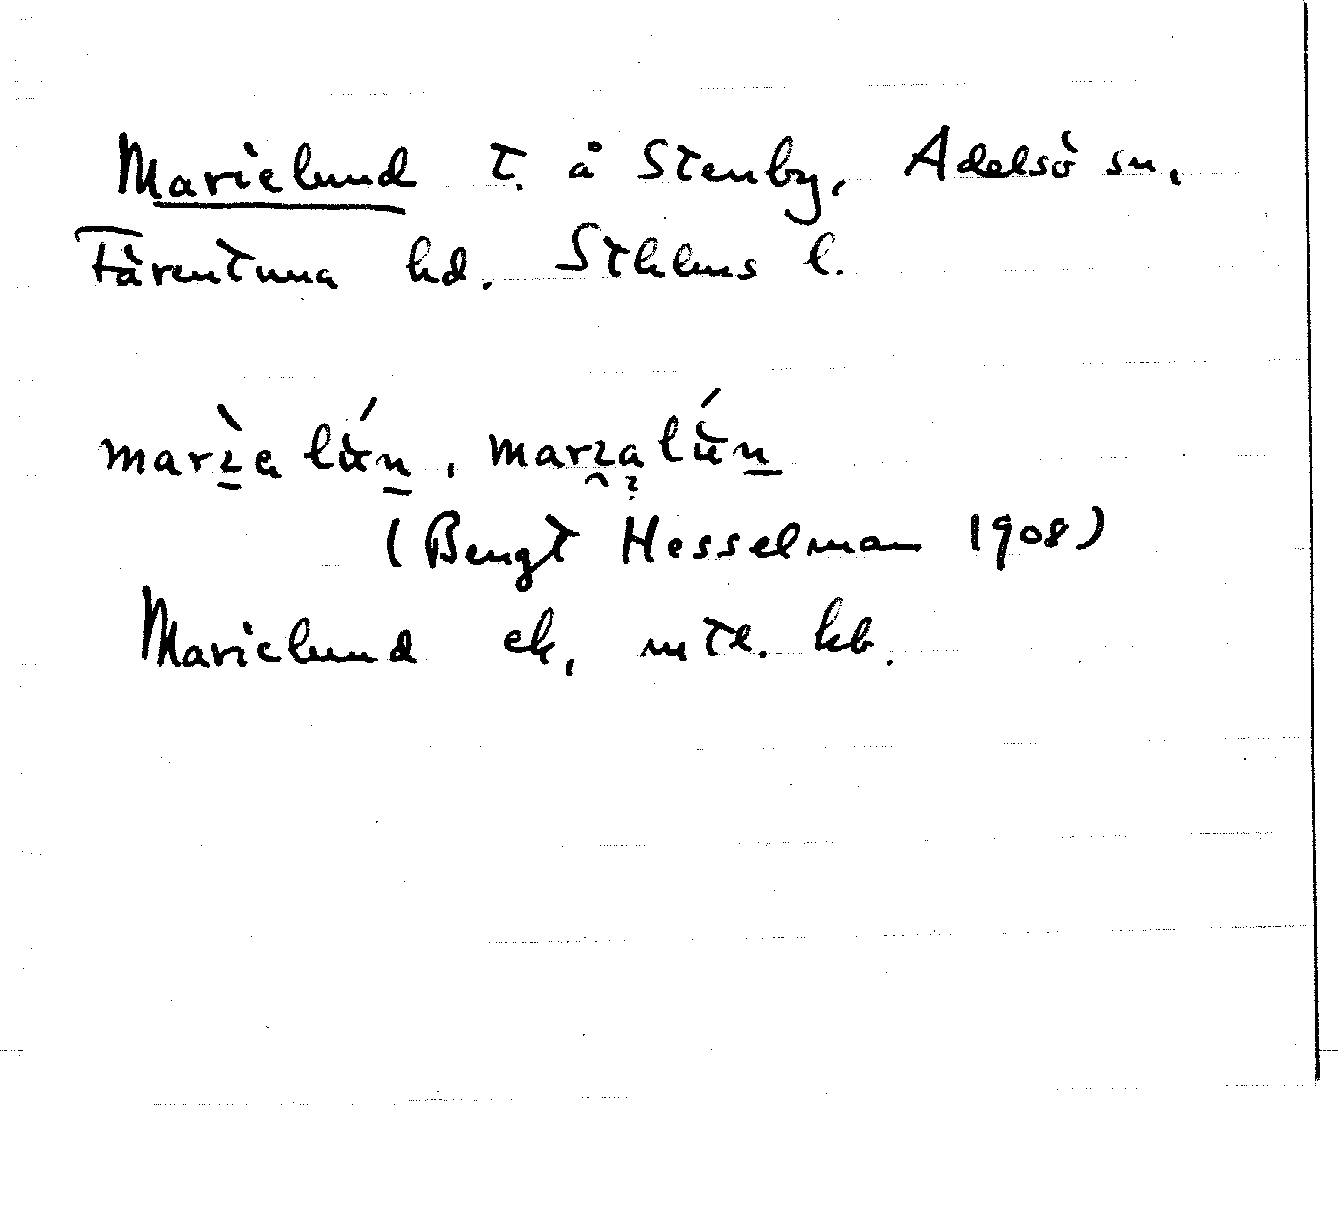 Marielund t. å Stenby, Adelsö sn,
Färentuna hd. Sthlms l.
(Bengt Hesselman 1908)
Marielund ek, mtl. kb.